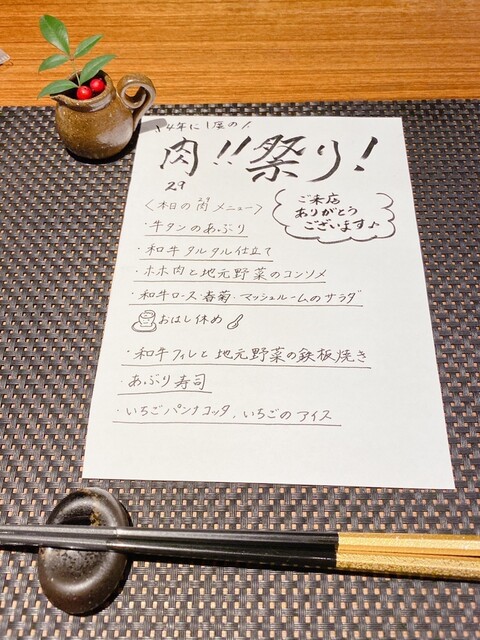 \4年に1度の/
肉!!祭り!
29
ご来店
ありがとう
ございます♪
〈本日の肉メニュー〉
・牛タンのあぶり
・和牛タルタル仕立て
・ホホ肉と地元野菜のコンソメ
・和牛ロース・春菊・マッシュルームのサラダ
おはし休め
・和牛フィレと地元野菜の鉄板焼き
・あぶり寿司
・いちごパンナコッタ、いちごのアイス